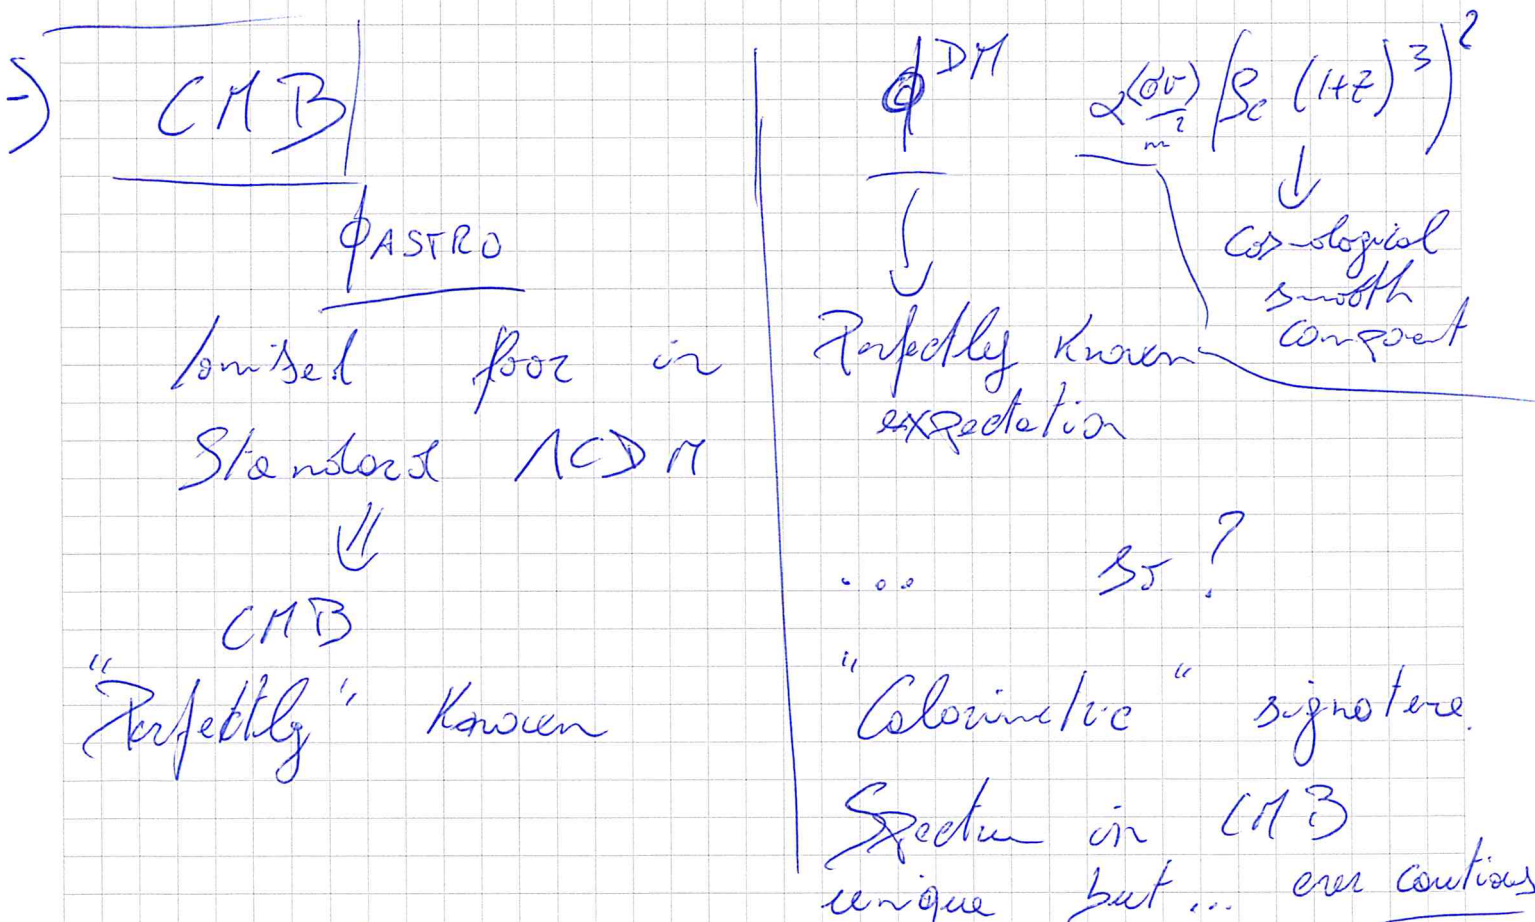 -) CMB
ϕ ASTRO
Ionised floor in
Standard ΛCDM
⇓
CMB
"Perfectly" Known
ϕ DM α ⟨σv⟩/m² (ρc (1+z)³)²
↓
Cosmological
smooth
component
Perfectly Known
expectation
... so?
"Calorimetric" signature.
Spectrum in CMB
unique but ... over cautious